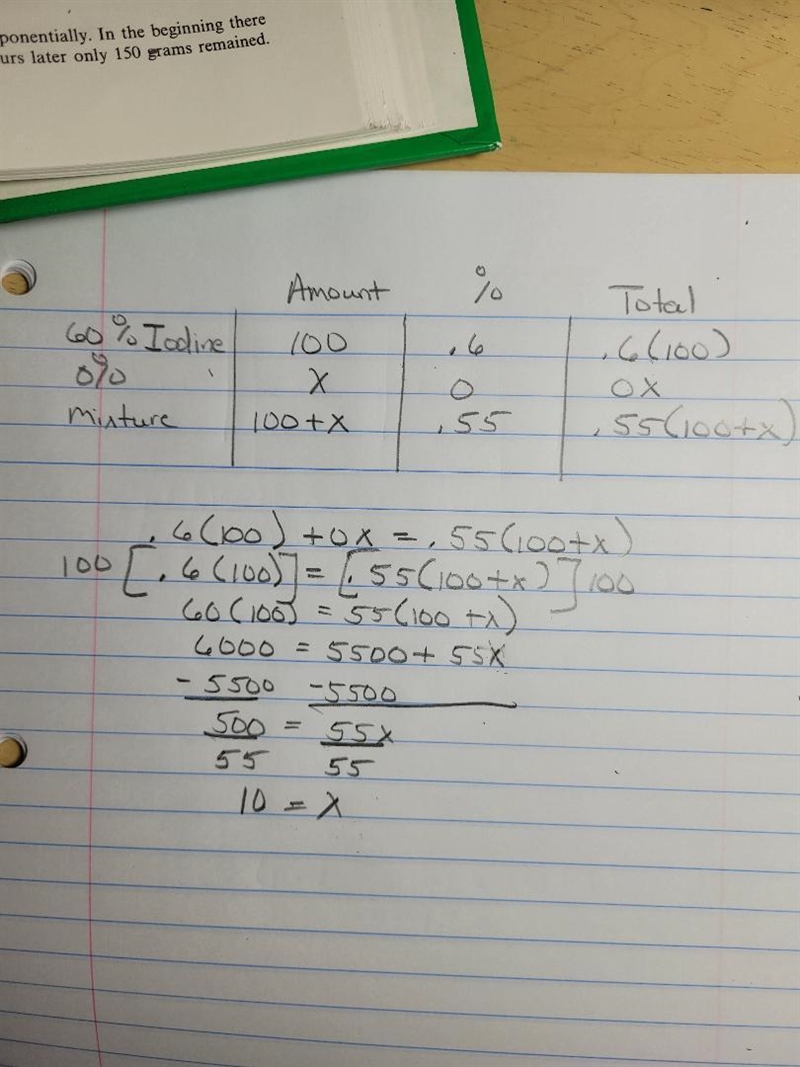 ponentially. In the beginning there
urs later only 150 grams remained.
Amount % Total
60% Iodine 100 .6 .6(100)
0% x 0 0x
Mixture 100+x .55 .55(100+x)
.6(100) + 0x = .55(100+x)
100[.6(100)] = [.55(100+x)]100
60(100) = 55(100+x)
6000 = 5500 + 55x
-5500 -5500
500 = 55x
55 55
10 = x